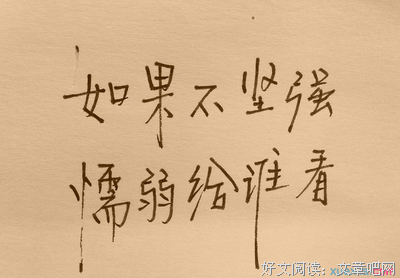 如果不坚强
懦弱给谁看
好文阅读:文章吧网